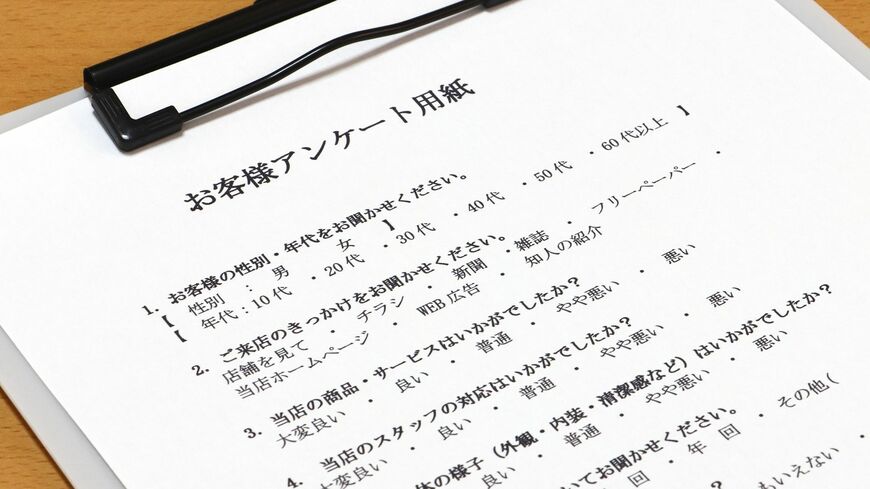 お客様アンケート用紙
1. お客様の性別・年代をお聞かせください。
【 性別 : 男 女 】
【 年代:10代 ・20代 ・30代 ・40代 ・50代 ・60代以上 】
2. ご来店のきっかけをお聞かせください。
店舗を見て ・ チラシ ・ 新聞 ・雑誌 ・ フリーペーパー ・
当店ホームページ ・ WEB広告 ・ 知人の紹介
3. 当店の商品・サービスはいかがでしたか?
大変良い ・ 良い ・ 普通 ・ やや悪い ・ 悪い
4. 当店のスタッフの対応はいかがでしたか?
大変良い ・ 良い ・ 普通 ・ やや悪い ・ 悪い
の様子(外観・内装・清潔感など)はいかがでしたか?
良い ・ 普通 ・ やや悪い ・ 悪い
いてお聞かせください。
回 ・ 年 回 ・ その他(
?
もいえない ・